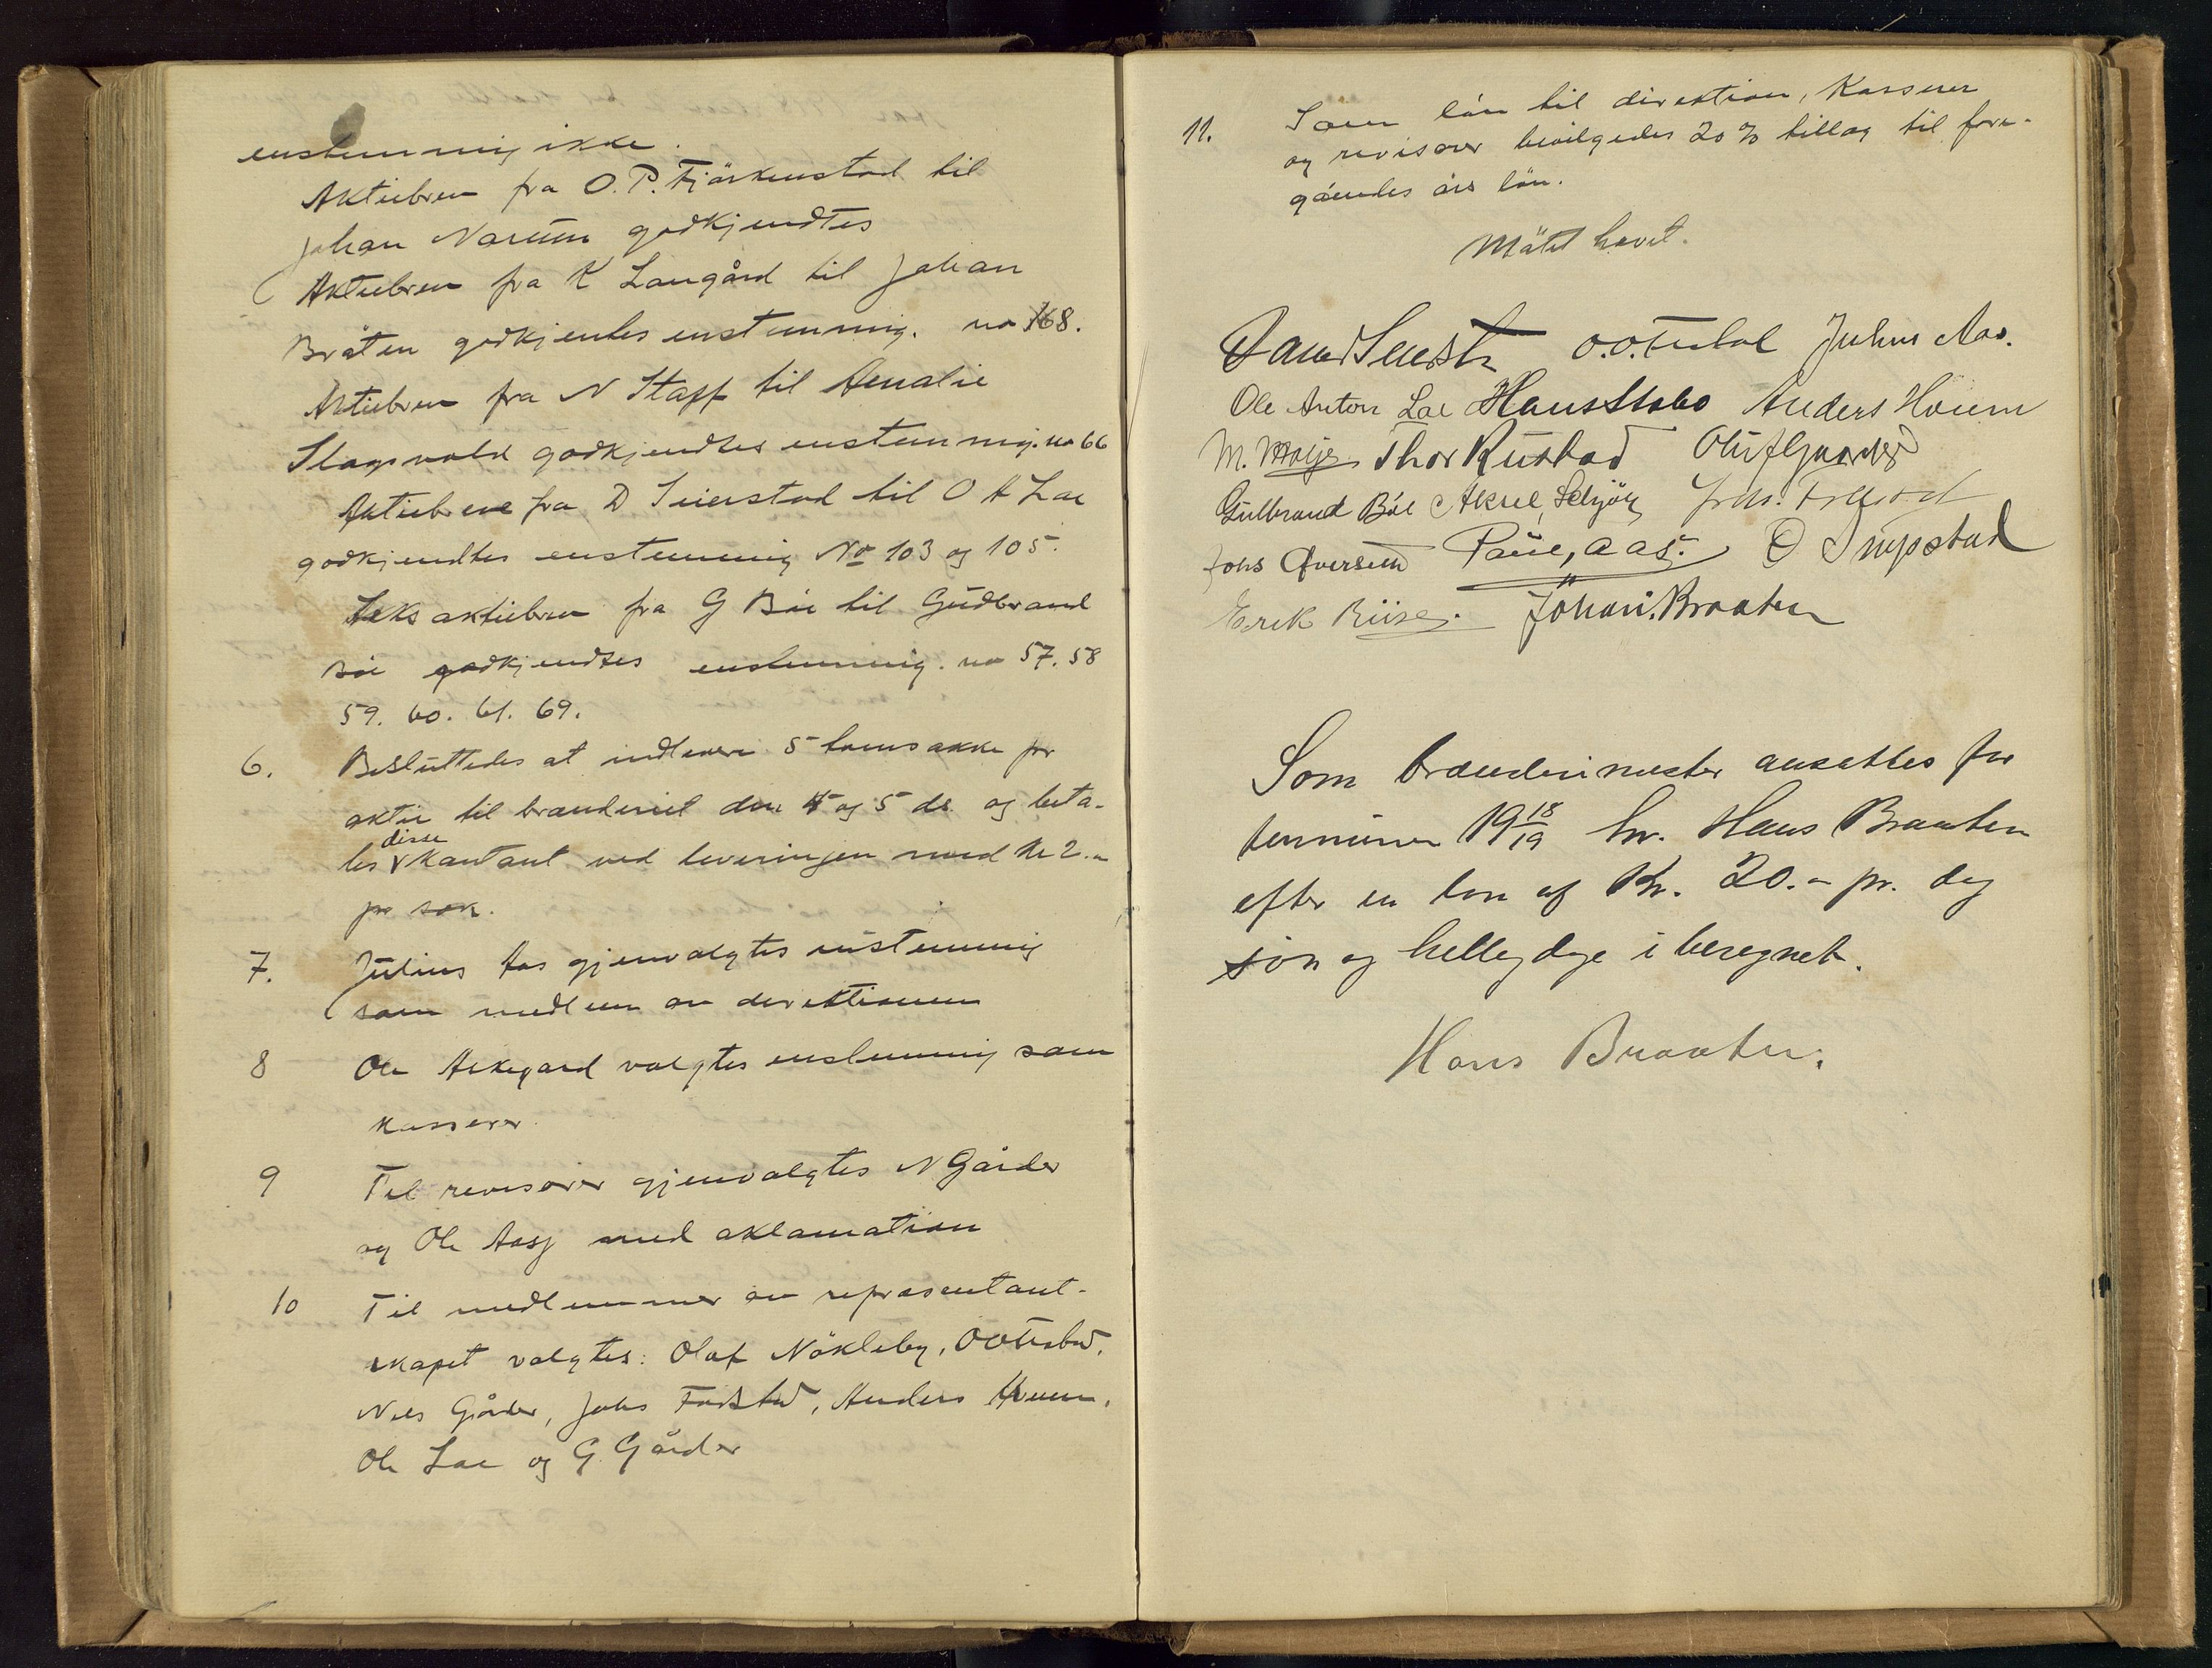 enstemmig ikke.
Aktiebrev fra O. P. Fjörkenstad til
Johan Narum godkjendtes
Aktiebrev fra K Langård til Johan
Bråten godkjentes enstemmig. no 168.
Aktiebrev fra N Stapf til Amalie
Slagsvold godkjendtes enstemmig. no 66
Aktiebreve fra D Seierstad til O A Loe
godkjendtes enstemmig No 103 og 105.
Seks aktiebrev fra G Böe til Gudbrand
Böe godkjendtes enstemmig. no 57. 58
59. 60. 61. 69.
6. Besluttedes at indlevere 5 tomsække pr
aktie til brænderiet den 4 og 5 ds. og beta-
les disse kontant ved leveringen med kr 2.-
pr sæk.
7. Julius Aas gjenvalgtes enstemmig
som medlem av direktionen
8 Ole Askegård valgtes enstemmig som
kasserer.
9 Til revisorer gjenvalgtes N Gårder
og Ole Aas med aklamation
10 Til medlemmer av repræsentant-
skapet valgtes: Olaf Nökleby, O O
Nils Gårder, Johs Faustad, Anders Hveem,
Ole Loe og G Gårder
11. Som lön til direktion, Kasserer
og revisorer bevilgedes 20 % tillæg til fore-
gåendes års lön.
Mötet hævet.
O. O. Julius Aas.
Ole Anton Loe Hans Stabo Anders Hveem
M. Thor Rustad Oluf Gaarder
Gulbrand Böe Aksel
Johs Paul, Aas. O
Erik Johan. Braaten
Som brænderimester ansattes for
terminen 19 18/19 hr. Hans Braaten
efter en lön af Kr. 20.- pr. dag
sön og helligdage iberegnet.
Hans Braaten.